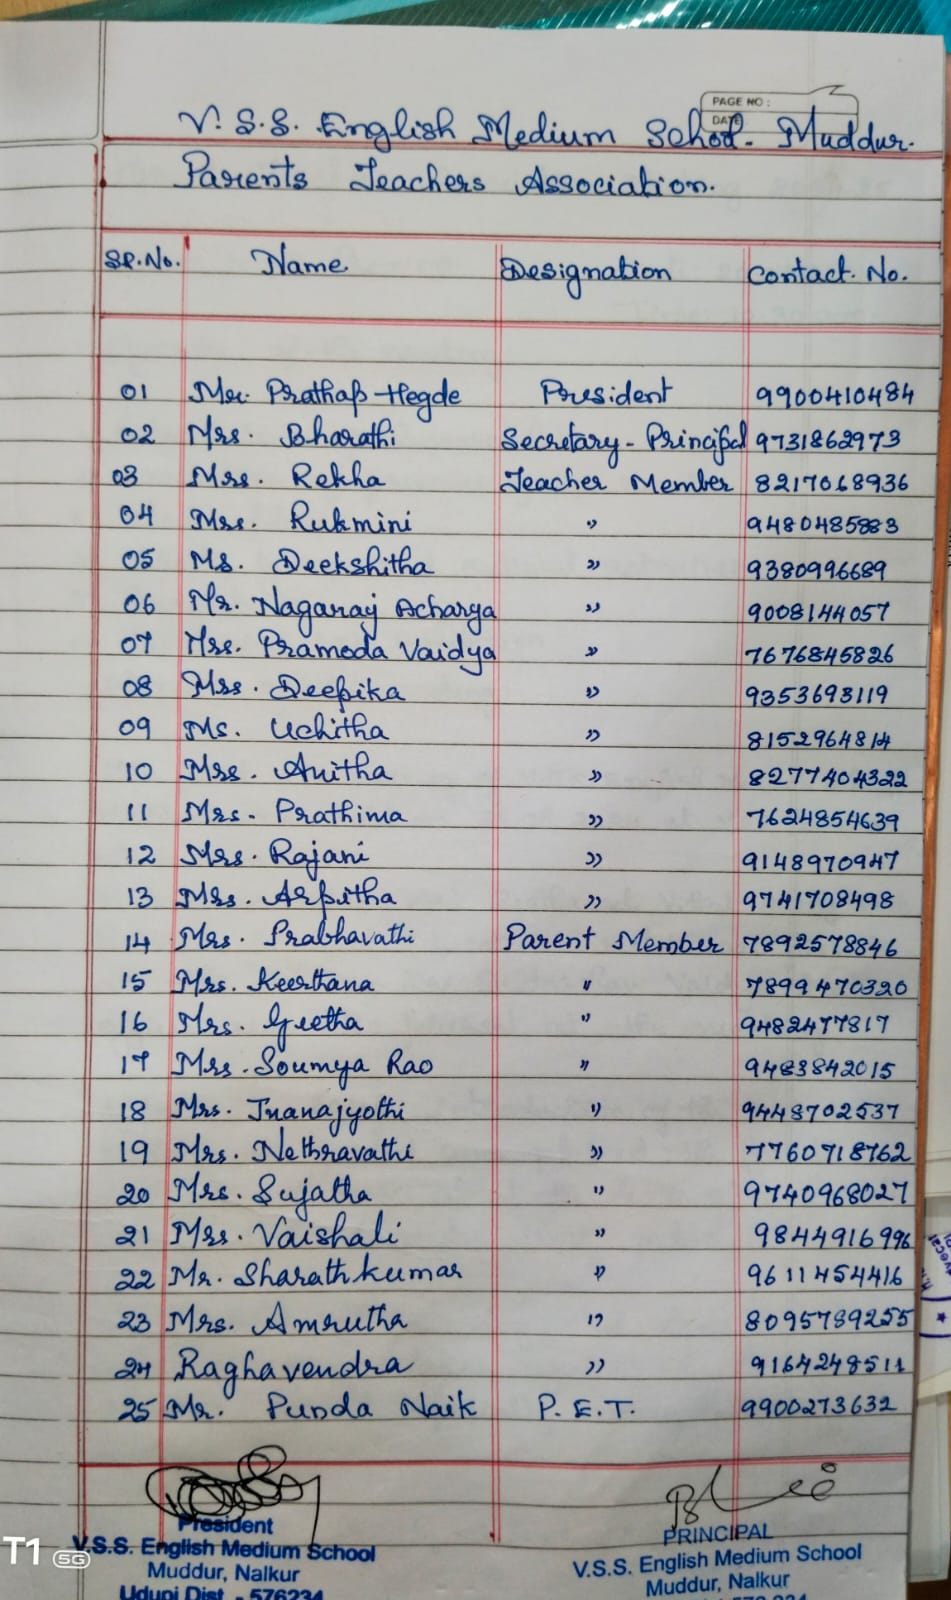 PAGE NO :
DATE
V. S.S. English Medium School. Muddur.
Parents Teachers Association.
SR.No. Name Designation Contact. No.
01 Mr. Prathap Hegde President 9900410484
02 Mrs. Bharathi Secretary - Principal 9731862973
03 Mrs. Rekha Teacher Member 8217068936
04 Mrs. Rukmini " 9480485883
05 Ms. Deekshitha " 9380996689
06 Mr. Nagaraj Acharya " 9008144057
07 Mrs. Pramoda Vaidya " 7676845826
08 Mrs. Deepika " 9353693119
09 Ms. Uchitha " 8152964814
10 Mrs. Anitha " 8277404322
11 Mrs. Prathima " 7624854639
12 Mrs. Rajani " 9148970947
13 Mrs. Arpitha " 9741708498
14 Mrs. Prabhavathi Parent Member 7892578846
15 Mrs. Keerthana " 7899470320
16 Mrs. Geetha " 9482477817
17 Mrs. Soumya Rao " 9483842015
18 Mrs. Jnanajyothi " 9448702537
19 Mrs. Nethravathi " 7760718762
20 Mrs. Sujatha " 9740968027
21 Mrs. Vaishali " 9844916996
22 Mr. Sharathkumar " 9611454416
23 Mrs. Amrutha " 8095789255
24 Raghavendra " 9164248511
25 Mr. Punda Naik P.E.T. 9900273632
President
V.S.S. English Medium School
Muddur, Nalkur
Udupi Dist - 576234
PRINCIPAL
V.S.S. English Medium School
Muddur, Nalkur
T1 5G